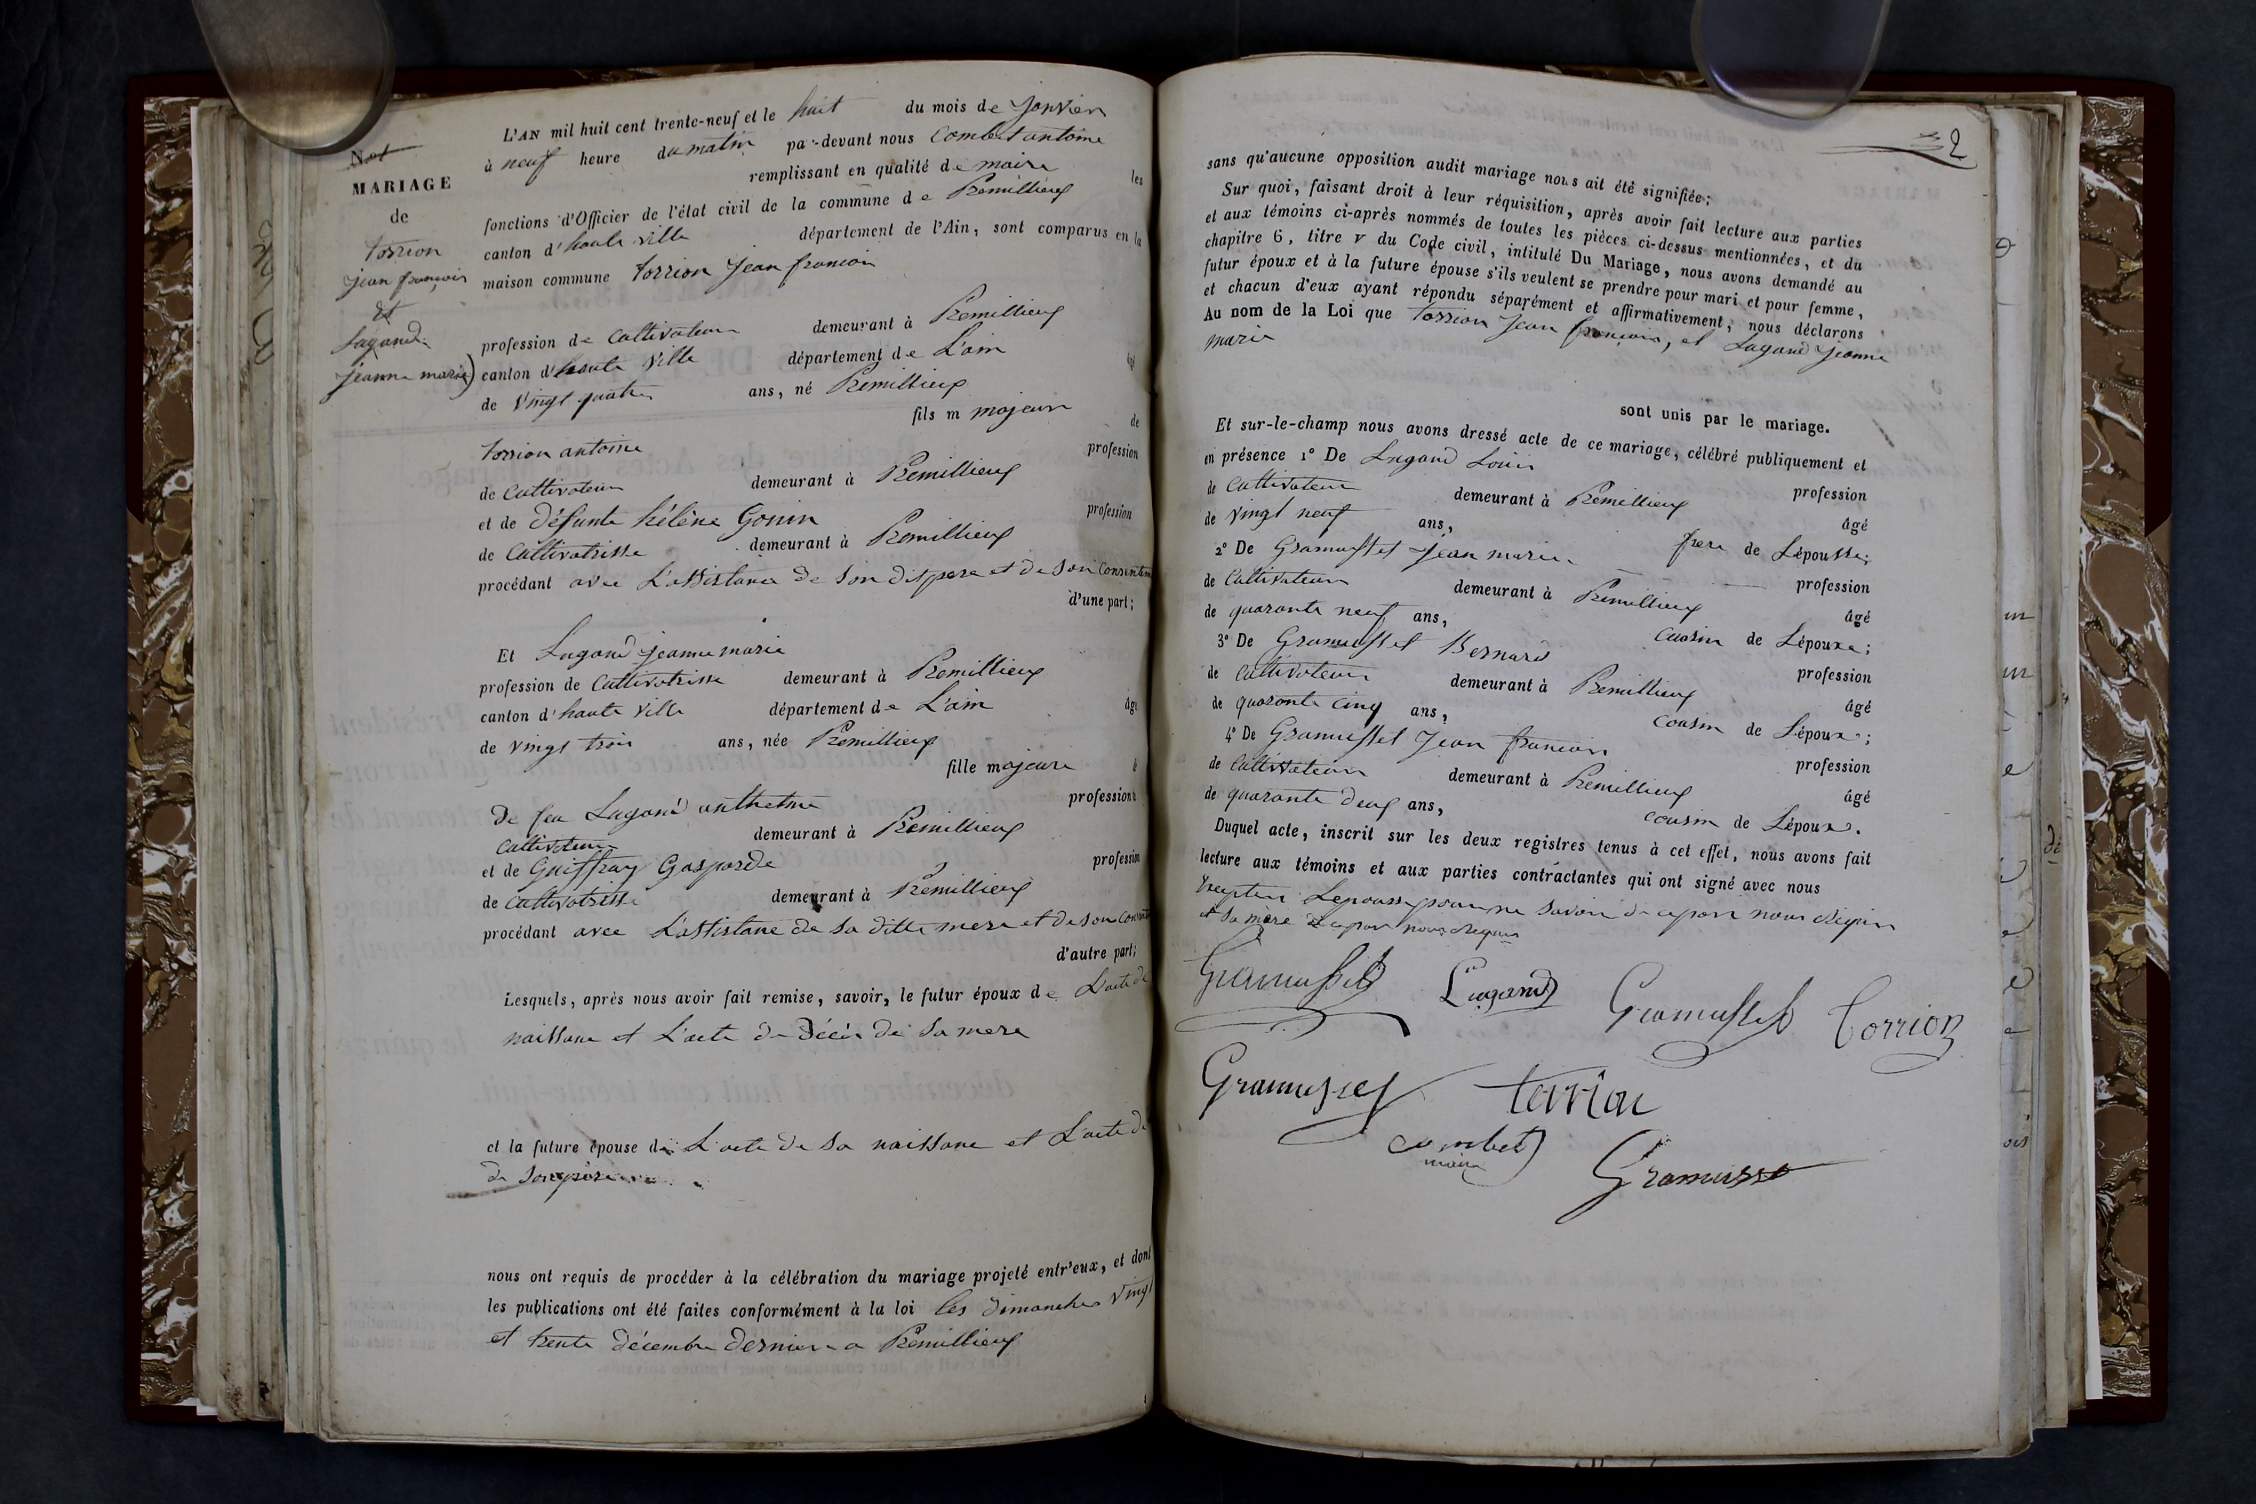 N° 1
MARIAGE
de
torrion
jean françois
et
Lugand
jeanne marie
L'AN mil huit cent trente-neuf et le huit du mois de Janvier
à neuf heure du matin par-devant nous Combet antoine
remplissant en qualité de maire les
fonctions d'Officier de l'état civil de la commune de Prémillieux
canton d'haute ville département de l'Ain, sont comparus en la
maison commune torrion Jean francois
profession de Cultivateur demeurant à Prémillieux
canton d'haute Ville département de L'ain âgé
de Vingt quatre ans, né Prémillieux
fils m majeur de
torrion antoine profession
de Cultivateur demeurant à Prémillieux
et de défunte hélène Gonin profession
de Cultivatrisse demeurant à Prémillieux
procédant avec L'assistance de Son dit pere et de Son Consentem
d'une part;
Et Lugand jeanne marie
profession de Cultivatrisse demeurant à Prémillieux
canton d'haute Ville département de L'ain âgé
de vingt trois ans, née Prémillieux
fille majeure d
De feu Lugand anthelme profession d
Cultivateur demeurant à Prémillieux
et de Guiffray Gasparde profession
de Cultivatrisse demeurant à Prémillieux
procédant avec L'assistance de Sa ditte mere et de son Consent
d'autre part;
Lesquels, après nous avoir fait remise, savoir, le futur époux de L'acte de
naissance et L'acte de Décès de Sa mere
et la future épouse de L'acte de Sa naissance et L'acte de
de Son père
nous ont requis de procéder à la célébration du mariage projeté entr'eux, et dont
les publications ont été faites conformément à la loi les dimanches Vingt
et trente décembre dernier a Prémillieux
2
sans qu'aucune opposition audit mariage nous ait été signifiée;
Sur quoi, faisant droit à leur réquisition, après avoir fait lecture aux parties
et aux témoins ci-après nommés de toutes les pièces ci-dessus mentionnées, et du
chapitre 6, titre v du Code civil, intitulé Du Mariage, nous avons demandé au
futur époux et à la future épouse s'ils veulent se prendre pour mari et pour femme,
et chacun d'eux ayant répondu séparément et affirmativement, nous déclarons
Au nom de la Loi que torrion Jean françois, et Lugand Jeanne
marie
sont unis par le mariage.
Et sur-le-champ nous avons dressé acte de ce mariage, célébré publiquement et
en présence 1° De Lugand Louis
de Cultivateur demeurant à Prémillieux profession
de vingt neuf ans, âgé
frere de Lépousse;
2° De Gramusset Jean marie
de Cultivateur demeurant à Prémillieux profession
de quarante neuf ans, âgé
cousin de Lépoux;
3° De Gramusset Bernard
de Cultivateur demeurant à Prémillieux profession
de quarante cinq ans, âgé
cousin de Lépoux;
4° De Gramusset Jean francois
de Cultivateur demeurant à Prémillieux profession
de quarante deux ans, âgé
cousin de Lépoux.
Duquel acte, inscrit sur les deux registres tenus à cet effet, nous avons fait
lecture aux témoins et aux parties contractantes qui ont signé avec nous
Excepter Lepousse pour ne Savoir de ce par nous
et Sa mère de ce par nous
Gramusset Lugand Gramusset Torrion
Gramusset torrion
combet
maire
Gramusse